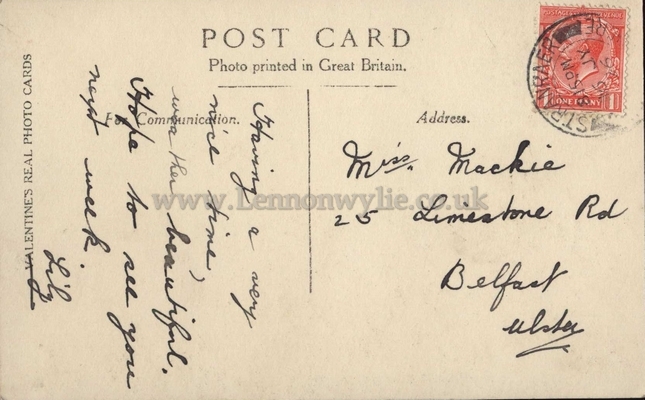 POST CARD
Photo printed in Great Britain.
For Communication.
Address.
VALENTINE'S REAL PHOTO CARDS
Having a very
nice time,
weather beautiful.
Hope to see you
next week.
Lily
Miss. Mackie
25 Limestone Rd
Belfast
Ulster
POSTAGE REVENUE
1 ONE PENNY 1
STRANRAER
www.Lennonwylie.co.uk